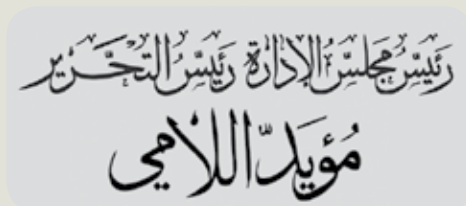 رئيس مجلس الإدارة رئيس التحرير
مؤيد اللامي